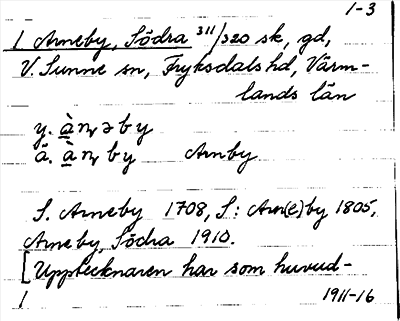 1-3
1 Arneby, Södra 311/320 sk, gd,
V. Sunne sn, Fryksdals hd, Värm-
lands län
y. àn̨əby
ä. àn̨by Arnby
S. Arneby 1708, S: Arn(e)by 1805,
Arneby, Södra 1910.
[Upptecknaren har som huvud-
1 1911-16